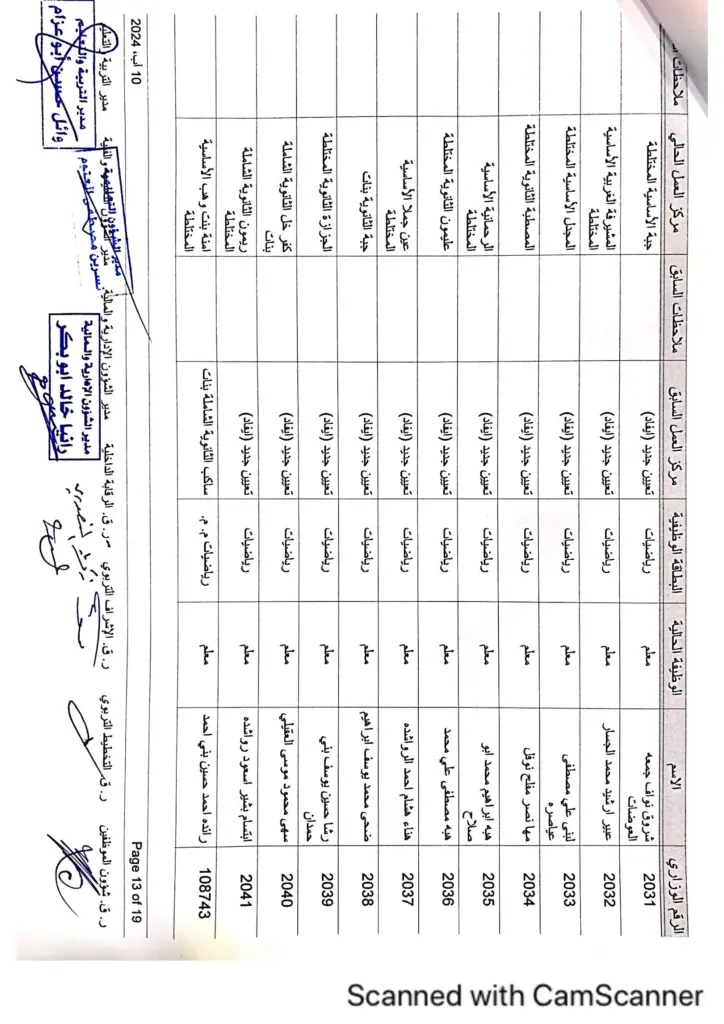 الرقم الوزاري الاسم الوظيفة الحالية البطاقة الوظيفية مركز العمل السابق ملاحظات السابق مركز العمل الحالي ملاحظات
2031 شروق نواف جمعه العوضات معلم رياضيات تعيين جديد (ايفاد) جبة الأساسية المختلطة
2032 عبير ارشيد محمد الجسار معلم رياضيات تعيين جديد (ايفاد) المشيرفة الغربية الأساسية المختلطة
2033 لبنى علي مصطفى عياصره معلم رياضيات تعيين جديد (ايفاد) المجدل الأساسية المختلطة
2034 مها نصر مفلح نوفل معلم رياضيات تعيين جديد (ايفاد) المصطبة الثانوية المختلطة
2035 هبه ابراهيم محمد ابو صلاح معلم رياضيات تعيين جديد (ايفاد) الرحمانية الأساسية المختلطة
2036 هبه مصطفى علي محمد معلم رياضيات تعيين جديد (ايفاد) عليمون الثانوية المختلطة
2037 هناء هشام احمد الرواشده معلم رياضيات تعيين جديد (ايفاد) عين جملا الأساسية المختلطة
2038 ضحى محمد يوسف ابراهيم معلم رياضيات تعيين جديد (ايفاد) جبة الثانوية بنات
2039 رشا حسين يوسف بني حمدان معلم رياضيات تعيين جديد (ايفاد) الجزازة الثانوية المختلطة
2040 سهى محمود موسى العقيلي معلم رياضيات تعيين جديد (ايفاد) كفر خل الثانوية الشاملة بنات
2041 ابتسام بشير اسعود رواشده معلم رياضيات تعيين جديد (ايفاد) ريمون الثانوية الشاملة المختلطة
108743 رائده احمد حسين بني احمد معلم رياضيات م. م. ساكب الثانوية الشاملة بنات امنة بنت وهب الأساسية المختلطة
Page 13 of 19
10 آب، 2024
ر. ق. شؤون الموظفين ر. ق. التخطيط التربوي ر. ق. الإشراف التربوي ر. ق. الرقابة الداخلية مدير الشؤون الإدارية والمالية. مدير الشؤون التعليمية والفنية مدير التربية والتعليم
مدير الشؤون الادارية والمالية
رانيا خالد ابو بكر
مدير الشؤون التعليمية
نسرين مصطفى العتوم
مدير التربية والتعليم
وائل حسين أبو عزام
Scanned with CamScanner